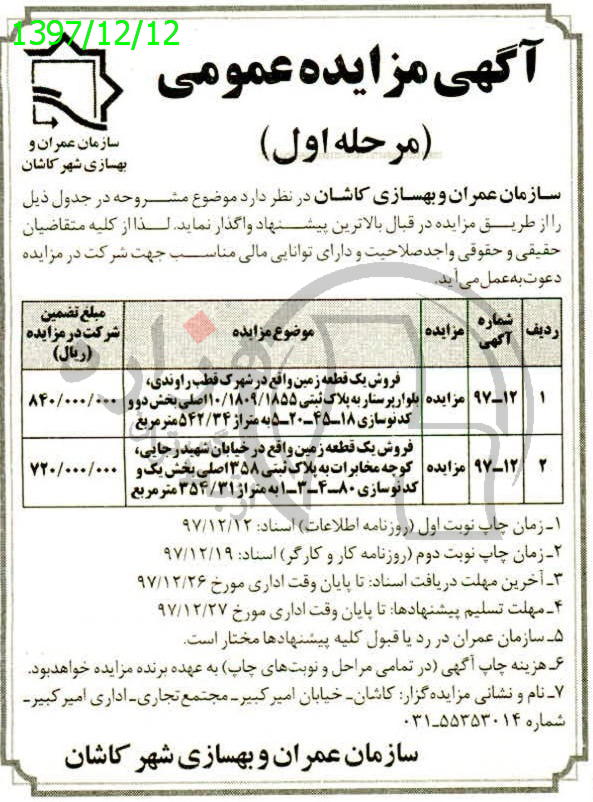 1397/12/12
آگهی مزایده عمومی
(مرحله اول)
سازمان عمران و
بهسازی شهر کاشان
سازمان عمران و بهسازی کاشان در نظر دارد موضوع مشروحه در جدول ذیل
را از طریق مزایده در قبال بالاترین پیشنهاد واگذار نماید. لذا از کلیه متقاضیان
حقیقی و حقوقی واجد صلاحیت و دارای توانایی مالی مناسب جهت شرکت در مزایده
دعوت به عمل می آید.
ردیف | شماره آگهی | مزایده | موضوع مزایده | مبلغ تضمین شرکت در مزایده (ریال)
۱ | ۹۷-۱۲ | مزایده | فروش یک قطعه زمین واقع در شهرک قطب راوندی، | ۸۴۰/۰۰۰/۰۰۰
بلوار پرستار به پلاک ثبتی ۱۰/۱۸۰۹/۱۸۵۵ اصلی بخش دو و
کد نوسازی ۱۸-۴۵-۲۰-۵ به متراژ ۵۴۲/۳۴ متر مربع
۲ | ۹۷-۱۲ | مزایده | فروش یک قطعه زمین واقع در خیابان شهید رجایی، | ۷۲۰/۰۰۰/۰۰۰
کوچه مخابرات به پلاک ثبتی ۳۵۸ اصلی بخش یک و
کد نوسازی ۸۰-۴-۳-۱ به متراژ ۳۵۴/۳۱ متر مربع
۱ـ زمان چاپ نوبت اول (روزنامه اطلاعات) اسناد: ۹۷/۱۲/۱۲
۲ـ زمان چاپ نوبت دوم (روزنامه کار و کارگر) اسناد: ۹۷/۱۲/۱۹
۳ـ آخرین مهلت دریافت اسناد: تا پایان وقت اداری مورخ ۹۷/۱۲/۲۶
۴ـ مهلت تسلیم پیشنهادها: تا پایان وقت اداری مورخ ۹۷/۱۲/۲۷
۵ـ سازمان عمران در رد یا قبول کلیه پیشنهادها مختار است.
۶ـ هزینه چاپ آگهی (در تمامی مراحل و نوبت‌های چاپ) به عهده برنده مزایده خواهد بود.
۷ـ نام و نشانی مزایده گزار: کاشان- خیابان امیر کبیر- مجتمع تجاری- اداری امیر کبیر-
شماره ۵۵۳۵۳۰۱۴-۰۳۱
سازمان عمران و بهسازی شهر کاشان